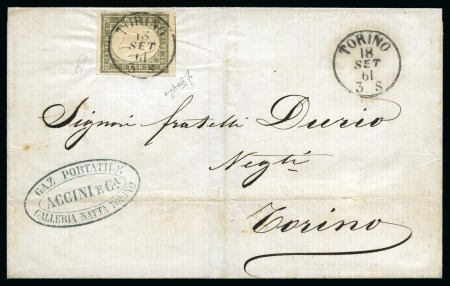 TORINO
18
SET
61
TORINO
18
SET
61
3 S
Signori fratelli Durio
Negti
Torino
GAZ PORTATILE
ACCINI E CA
GALLERIA NATTA TORINO